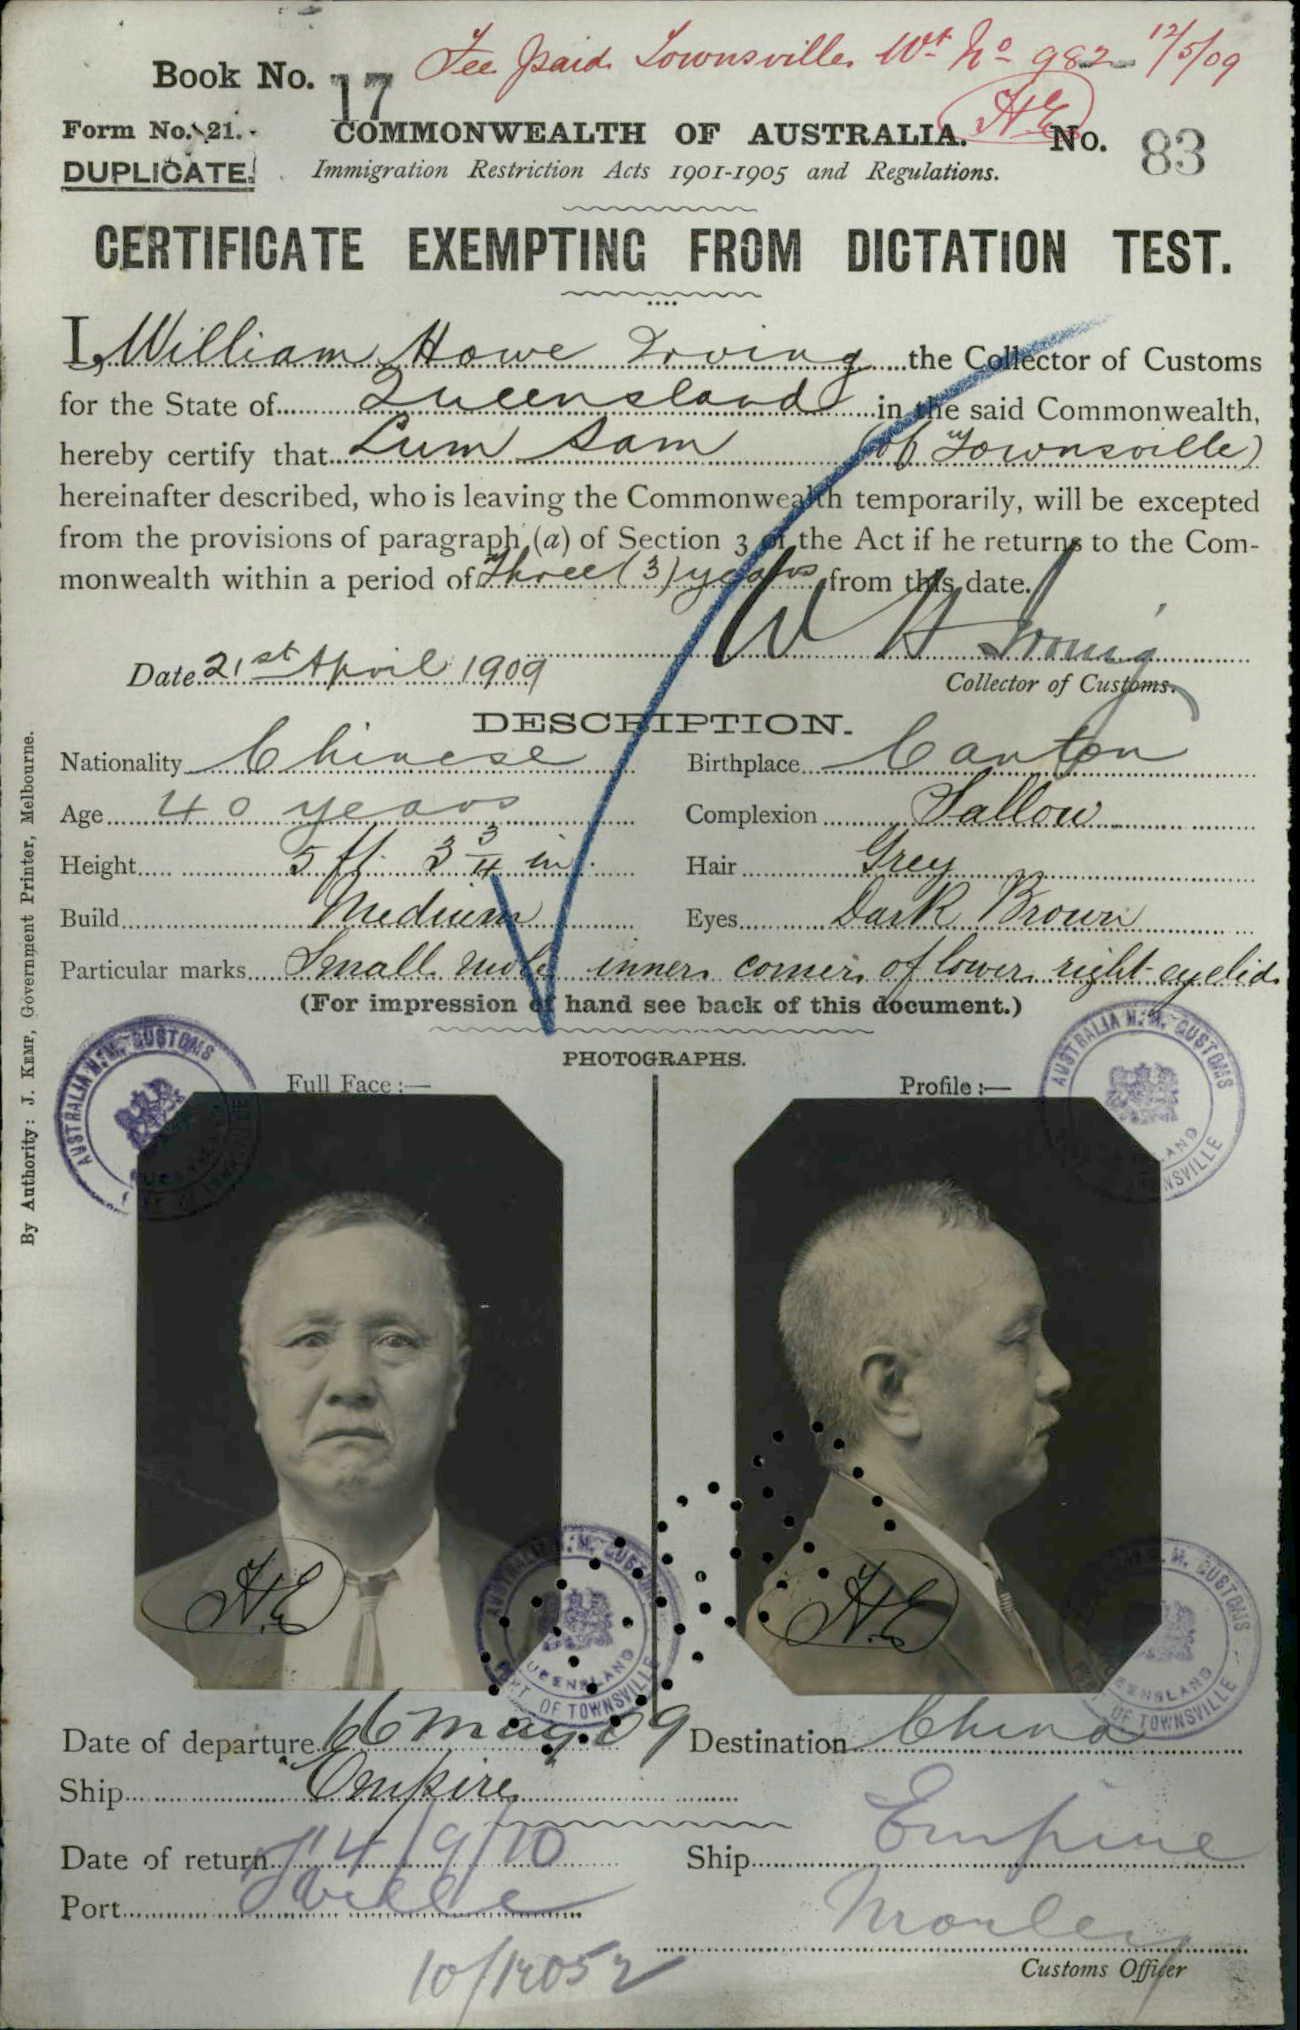 Fee paid Townsville Wt No 982 12/5/09
Book No. 17
H.E.
Form No. 21.
COMMONWEALTH OF AUSTRALIA.
No. 83
DUPLICATE.
Immigration Restriction Acts 1901-1905 and Regulations.
CERTIFICATE EXEMPTING FROM DICTATION TEST.
I, William Howe Irving the Collector of Customs
for the State of Queensland in the said Commonwealth,
hereby certify that Lum Sam (of Townsville)
hereinafter described, who is leaving the Commonwealth temporarily, will be excepted
from the provisions of paragraph (a) of Section 3 of the Act if he returns to the Com-
monwealth within a period of Three (3) years from this date.
W H Irving
Date 21st April 1909
Collector of Customs.
DESCRIPTION.
Nationality Chinese Birthplace Canton
Age 40 years Complexion Sallow
Height 5 ft. 3 3/4 in. Hair Grey
Build Medium Eyes Dark Brown
Particular marks Small mole inner corner of lower right eyelid
(For impression of hand see back of this document.)
PHOTOGRAPHS.
Full Face :— Profile :—
AUSTRALIA H.M. CUSTOMS
AUSTRALIA H.M. CUSTOMS
H.E.
H.E.
H.M. CUSTOMS QUEENSLAND PORT OF TOWNSVILLE
H.M. CUSTOMS QUEENSLAND PORT OF TOWNSVILLE
Date of departure 16 May 09 Destination China
Ship "Empire"
Date of return 14/9/10 Ship Empire
Port T'ville
Morley
10/12052
Customs Officer
By Authority: J. KEMP, Government Printer, Melbourne.